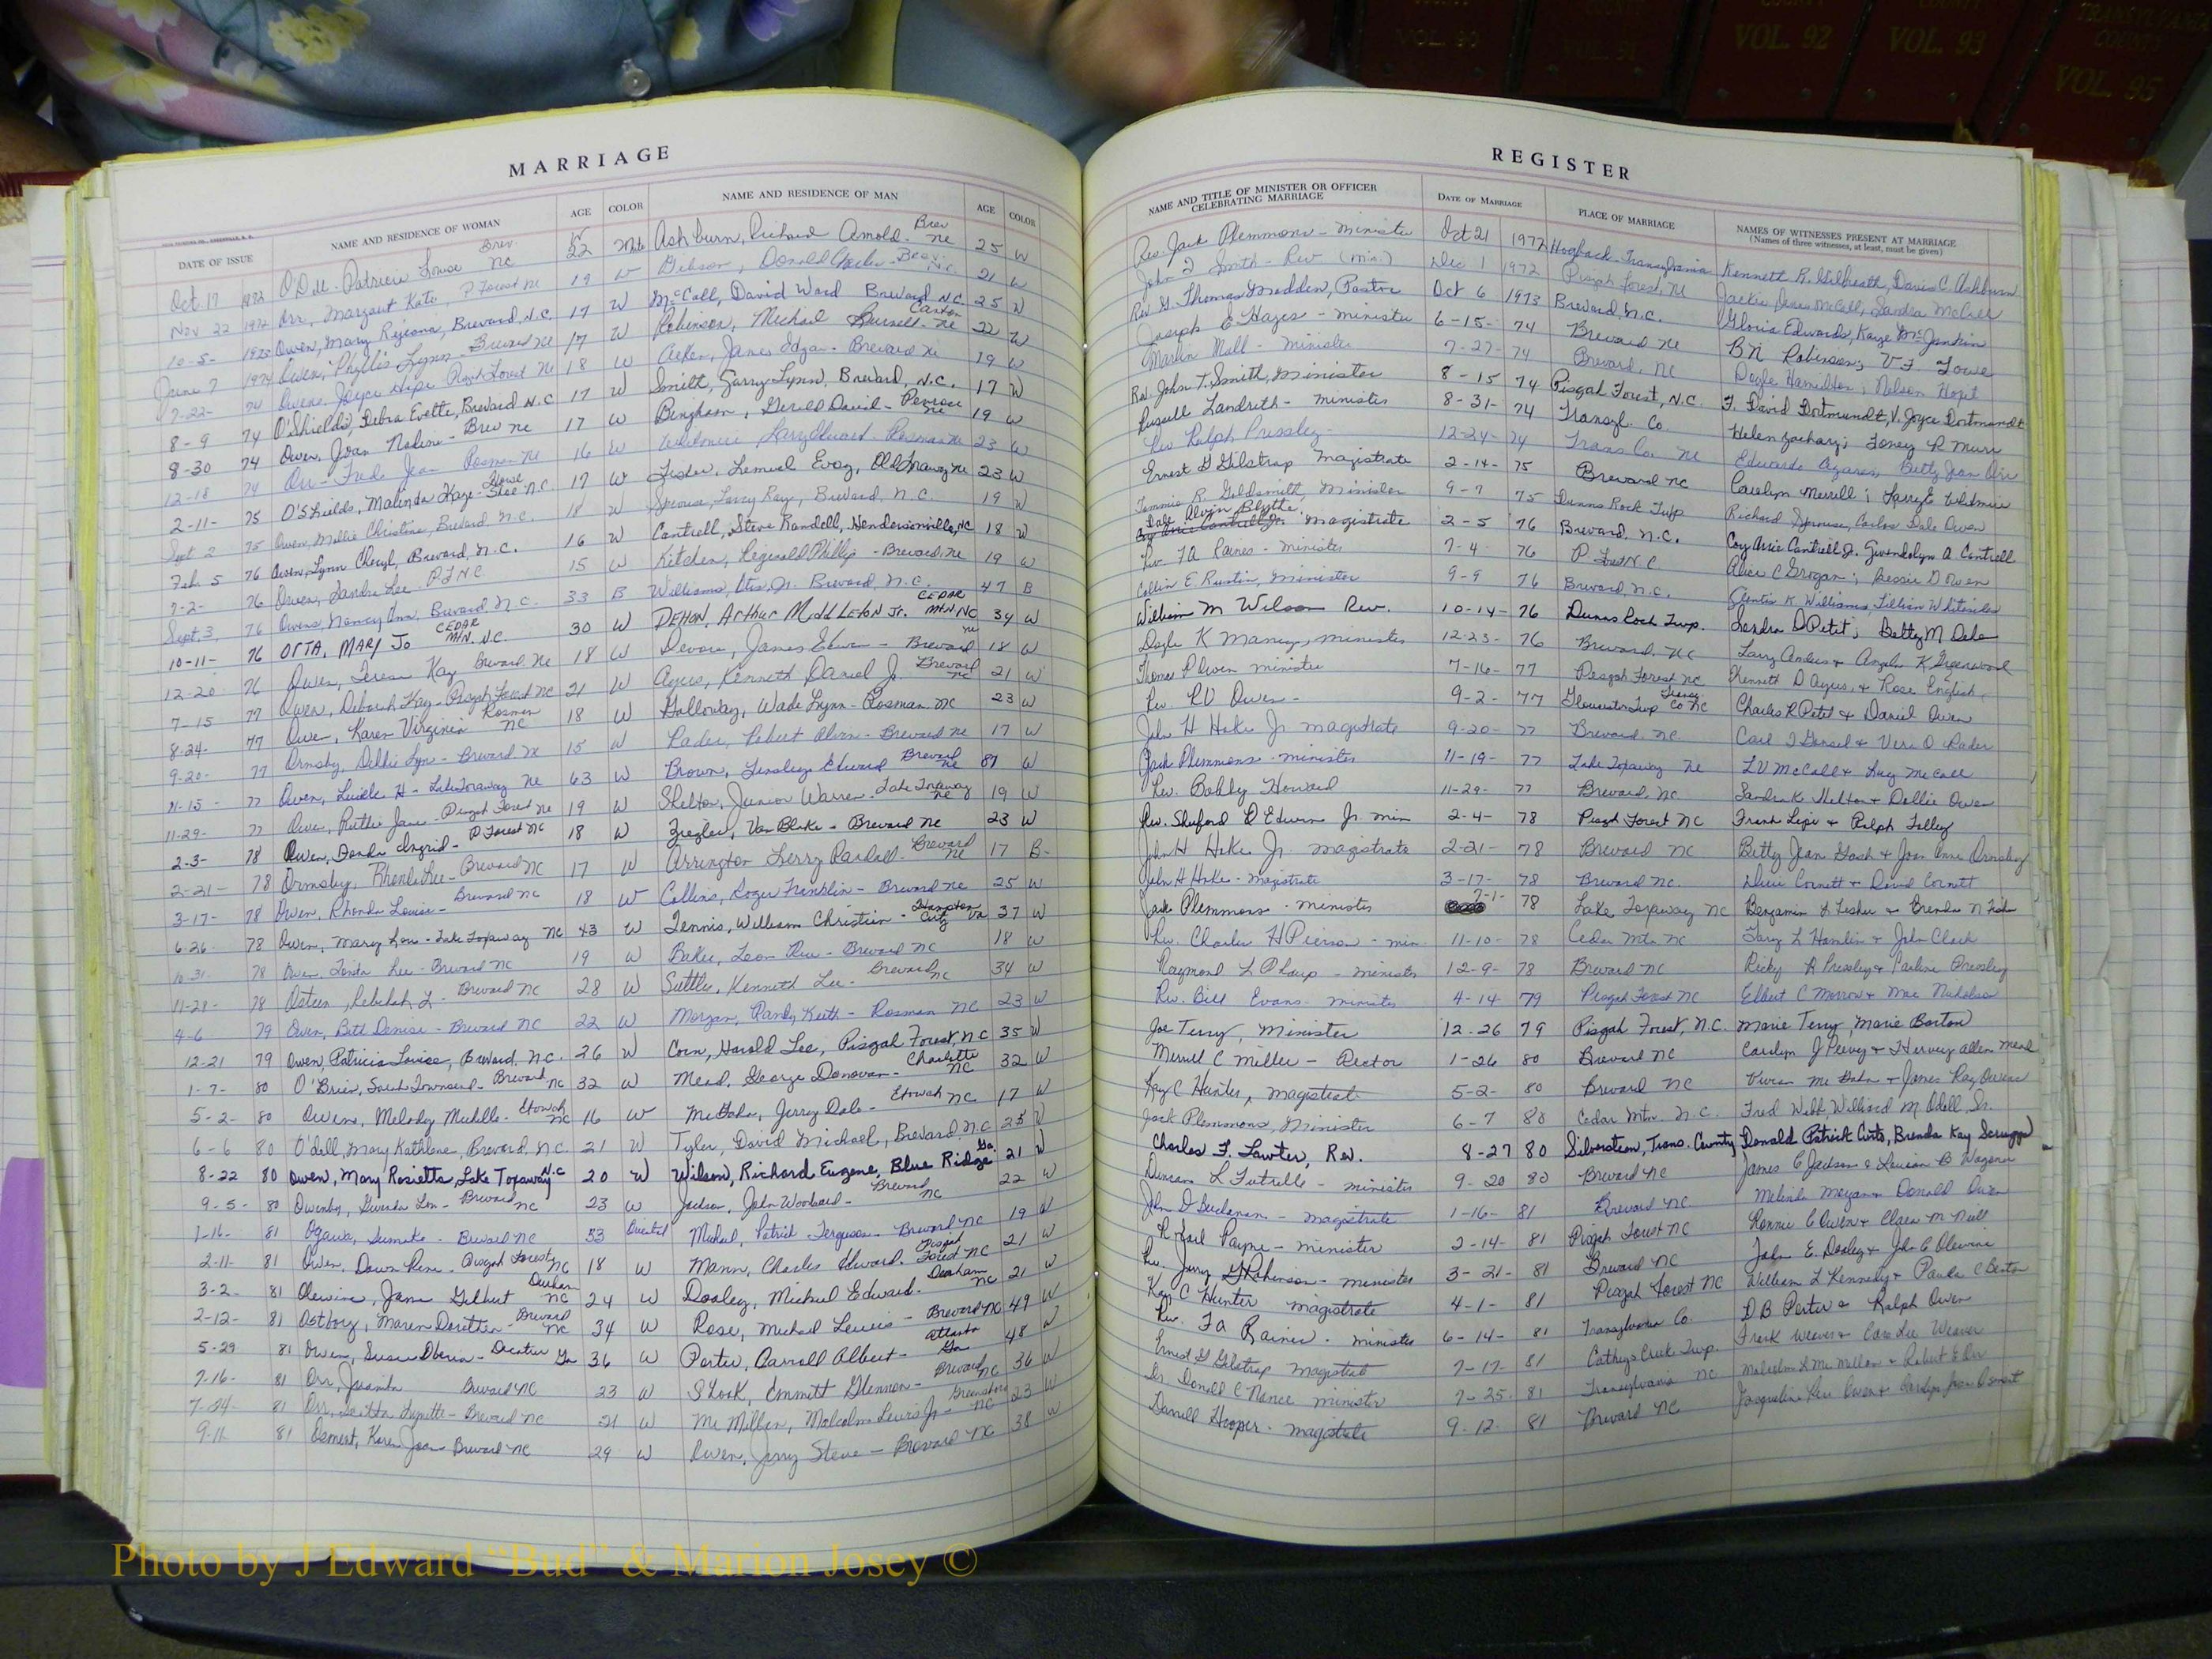 COUNTY VOL. 90
COUNTY VOL. 91
COUNTY VOL. 92
COUNTY VOL. 93
TRANSYLVANIA COUNTY VOL. 95
MARRIAGE
DATE OF ISSUE NAME AND RESIDENCE OF WOMAN AGE COLOR NAME AND RESIDENCE OF MAN AGE COLOR
Oct. 17 1972 O'Dell, Patricia Louise Brev. NC 22 Ashburn, Richard Arnold - Brev NC 25 W
Nov 22 1972 Orr, Margaret Kate, P Forest NC 19 W Gibson, Donald - Brev. N.C. 21 W
10-5- Owen, Mary Regeana, Brevard, N.C. 17 W McCall, David Ward Brevard N.C. 25 W
June 7 1974 Owen, Phyllis Lynn - Brevard NC 17 W Robinson, Michael Russell - Canton NC 22 W
7-22- 74 Owens, Joyce Hope Pisgah Forest NC 18 W Aiken, James Edgar - Brevard NC 19 W
8-9 74 O'Shields, Debra Evette, Brevard N.C 17 W Smith, Garry Lynn, Brevard, N.C. 17 W
8-30 74 Owen, Joan Nalini - Brev NC 17 W Bingham, Gerald David - Penrose NC 19 W
12-18 74 Orr - Jean Rosman NC 16 W Whitmire Larry Edward - Rosman NC 23 W
2-11- 75 O'Shields, Malinda Kaye - N.C. 17 W Fisher, Lemuel Evoy, Old Toxaway NC 23 W
Sept 2 75 Owen, Millie Christine, Brevard N.C. 18 W Sprouse, Larry Ray, Brevard, N.C. 19 W
Feb. 5 76 Owen, Lynn Cheryl, Brevard, N.C. 16 W Cantrell, Steve Randell, Hendersonville, NC 18 W
7-2- 76 Owen, Sandra Lee P F NC 15 W Kitchen, Reginald Phillip - Brevard, NC 19 W
Sept. 3 76 Owens, Nancy Ann, Brevard, N.C. 33 B Williams, Otis, Jr. Brevard, N.C. 47 B
10-11- 76 OTTA, MARY Jo CEDAR MTN. N.C. 30 W DEHON, ARTHUR MIDDLETON Jr. CEDAR MTN NC 34 W
12-20 76 Owen, Teresa Kay Brevard NC 18 W Devore, James Edwin - Brevard NC 18 W
7-15 77 Owen, Deborah Kay - Pisgah Forest NC 21 W Ayers, Kenneth Daniel Jr. Brevard NC 21 W
8-24- 77 Owen, Karen Virginia Rosman NC 18 W Galloway, Wade Lynn - Rosman NC 23 W
9-20- 77 Ormsby, Debbie Lyn - Brevard NC 15 W Rader, Robert Alvin - Brevard NC 17 W
11-15- 77 Owen, Lucille H - Lake Toxaway NC 63 W Brown, Linsley Edward Brevard NC 81 W
11-29- 77 Owen, Ruthie Jane - Pisgah Forest NC 19 W Shelton, Junior Warren - Lake Toxaway NC 19 W
2-3- 78 Owen, Donda Ingrid - P Forest NC 18 W Zeigler, Van Blake - Brevard NC 23 W
2-21- 78 Ormsby, Brenda Lee - Brevard NC 17 W Arrington Jerry Randall - Brevard NC 17 B
3-17- 78 Owen, Rhonda Louise - Brevard NC 18 W Collins, Roger Franklin - Brevard NC 25 W
6-26- 78 Owen, Mary Lou - Lake Toxaway NC 43 W Tennis, William Christian - Hampton City VA 37 W
10-31- 78 Owen, Lee - Brevard NC 19 W Baker, Leon - Brevard NC 18 W
11-21- 78 Osteen, Rebekah L. - Brevard NC 28 W Suttles, Kenneth Lee - Brevard NC 34 W
4-6 79 Owen, Beth Denise - Brevard NC 22 W Morgan, Randy Keith - Rosman NC 23 W
12-21 79 Owen, Patricia Louise, Brevard, N.C. 26 W Corn, Harold Lee, Pisgah Forest, N.C. 35 W
1-7- 80 O'Brien, Sarah Townsend - Brevard NC 32 W Mead, George Donovan - Charlotte NC 32 W
5-2- 80 Owen, Melody Michelle - Etowah NC 16 W McGaha, Jerry Dale - Etowah NC 17 W
6-6 80 O'dell, Mary Kathlene, Brevard, N.C. 21 W Tyler, David Michael, Brevard, N.C. 25 W
8-22 80 Owen, Mary Rosietta, Lake Toxaway N.C 20 W Wilson, Richard Eugene, Blue Ridge Ga. 21 W
9-5- 80 Owenby, Lou - Brevard NC 23 W Jackson, John Woodard - Brevard NC 22 W
1-16- 81 Ogawa, Sumako - Brevard NC 53 Oriental Michael, Patrick Ferguson - Brevard NC 19 W
2-11- 81 Owen, Dawn Rene - Pisgah Forest NC 18 W Mann, Charles Edward - Pisgah Forest NC 21 W
3-2- 81 Jane Gilbert Durham NC 24 W Dooley, Michael Edward - Durham NC 21 W
2-12- 81 Ostborg, Maren Dorettea - Brevard NC 34 W Rose, Michael Lewis - Brevard NC 49 W
5-29 81 Owen, Susan - Decatur Ga 36 W Porter, Carroll Albert - Atlanta Ga 48 W
7-16- 81 Orr, Juanita Brevard NC 23 W Shook, Emmitt Glennon - Brevard NC 36 W
7-24- 81 Orr, Lynette - Brevard NC 21 W McMillen, Malcolm Lewis Jr - Greensboro NC 23 W
9-11 81 Osment, Karen Jean Brevard NC 29 W Owen, Jerry Steve - Brevard NC 38 W
REGISTER
NAME AND TITLE OF MINISTER OR OFFICER CELEBRATING MARRIAGE DATE OF MARRIAGE PLACE OF MARRIAGE NAMES OF WITNESSES PRESENT AT MARRIAGE
(Names of three witnesses, at least, must be given)
Rev. Jack Plemmons - Minister Oct 21 1972 Hogback - Transylvania Kenneth R. Gilbreath, C. Ashburn
John T Smith - Rev (Min.) Dec 1 1972 Pisgah Forest, NC Jackie McCall, Sandra McCall
Rev G. Thomas Madden, Pastor Oct 6 1973 Brevard, N.C. Gloria Edwards, Kaye McJunkin
Joseph E Hayes - minister 6-15- 74 Brevard NC B N Robinson; V F Lowe
Martin Moll - Minister 7-27- 74 Brevard, NC Doyle Hamilton; Nelson
Rev. John T. Smith, Minister 8-15 74 Pisgah Forest, N.C. F. David Dortmundt, V. Joyce Dortmundt
Russell Landreth - Minister 8-31- 74 Transyl. Co. Helen Zachary; Toney R
Rev Ralph Pressley - 12-24- 74 Trans Co. NC Betty Jean Orr
Ernest G Gilstrap Magistrate 2-14- 75 Brevard NC Carolyn Merrill; Larry E Whitmire
Tommie R. Goldsmith, Minister 9-7 75 Dunns Rock Twp Richard Sprouse, Carlos Dale Owen
Dale Alvin Blythe, magistrate 2-5 76 Brevard, N.C. Coy Arrie Cantrell Jr. Gwendolyn A Cantrell
Rev. FA Raines - Minister 7-4 76 P. Forest N C Alice C Grogan; Bessie D Owen
Collin E Rustin, minister 9-9 76 Brevard, N.C. K Williams, Lillian
William M Wilson Rev. 10-14- 76 Dunns Rock Twp. Sandra D Petit; Betty M Dale
Doyle K Maney, minister 12-23- 76 Brevard, NC Larry Anders & Angela K Greenwood
Thomas P Owen minister 7-16- 77 Pisgah Forest NC Kenneth D Ayers, & Rose English
Rev RV Owen - 9-2- 77 Gloucester Twp Transy. Co NC Charles R Petit & Daniel Owen
John H Hoke Jr magistrate 9-20- 77 Brevard, NC Carl & Vera O Rader
Jack Plemmons - minister 11-19- 77 Lake Toxaway NC L V McCall & McCall
Rev. Bobby Howard 11-29- 77 Brevard, NC Sandra K Helton & Dollie Owen
Rev. Shuford D Edwin Jr. min 2-4- 78 Pisgah Forest NC Frank & Ralph Talley
John H Hoke Jr. magistrate 2-21- 78 Brevard NC Betty Jean Gash & Joan Anne Ormsby
John H Hoke - magistrate 3-17- 78 Brevard NC. Cornett & David Cornett
Jack Plemmons - minister 7-1- 78 Lake Toxaway NC Benjamin & Brenda N
Rev. Charles H Pierson - min 11-10- 78 Cedar Mtn NC Gary L Hamlin & John Clark
Raymond L - minister 12-9- 78 Brevard NC Ricky R Pressley & Pauline Pressley
Rev. Bill Evans - minister 4-14- 79 Pisgah Forest NC Elbert C Morrow & Mae Nicholson
Joe Terry, Minister 12-26 79 Pisgah Forest, N.C. Marie Terry, Marie Barton
Merrill C Miller - Rector 1-26 80 Brevard NC Carolyn J Peevy & Hervey Allen Mead
Kay C Hunter, magistrate 5-2- 80 Brevard NC Vivian McGaha & James Ray Owens
Jack Plemmons, Minister 6-7 80 Cedar Mtn. N.C. Fred Webb, Williard M. Odell, Sr.
Charles F. Lawter, Rev. 8-27 80 Silversteen, Trans. County Donald Patrick Curto, Brenda Kay Scruggs
Duncan L Futrelle - minister 9-20 80 Brevard NC James C Jackson & B Wagoner
John D Buchanan - magistrate 1-16- 81 Brevard NC Melinda Morgan & Donald Owen
R Earl Payne - minister 2-14- 81 Pisgah Forest NC Ronnie C Owen & Clara M Null
Rev. Jerry G Robinson - minister 3-21- 81 Brevard NC John E. Dooley & John C
Kay C Hunter magistrate 4-1- 81 Pisgah Forest NC William L Kennedy & Paula C
Rev. FA Raines - minister 6-14- 81 Transylvania Co. D B Porter & Ralph Owen
Ernest G Gilstrap magistrate 7-17- 81 Catheys Creek Twp. Frank Weaver & Weaver
Dr Donald C Nance minister 7-25- 81 Transylvania NC Malcolm L McMillan & Robert E Orr
Darrell Hooper - magistrate 9-12- 81 Brevard NC Jacqueline Owen & Carolyn Jean Osment
Photo by J Edward "Bud" & Marion Josey ©